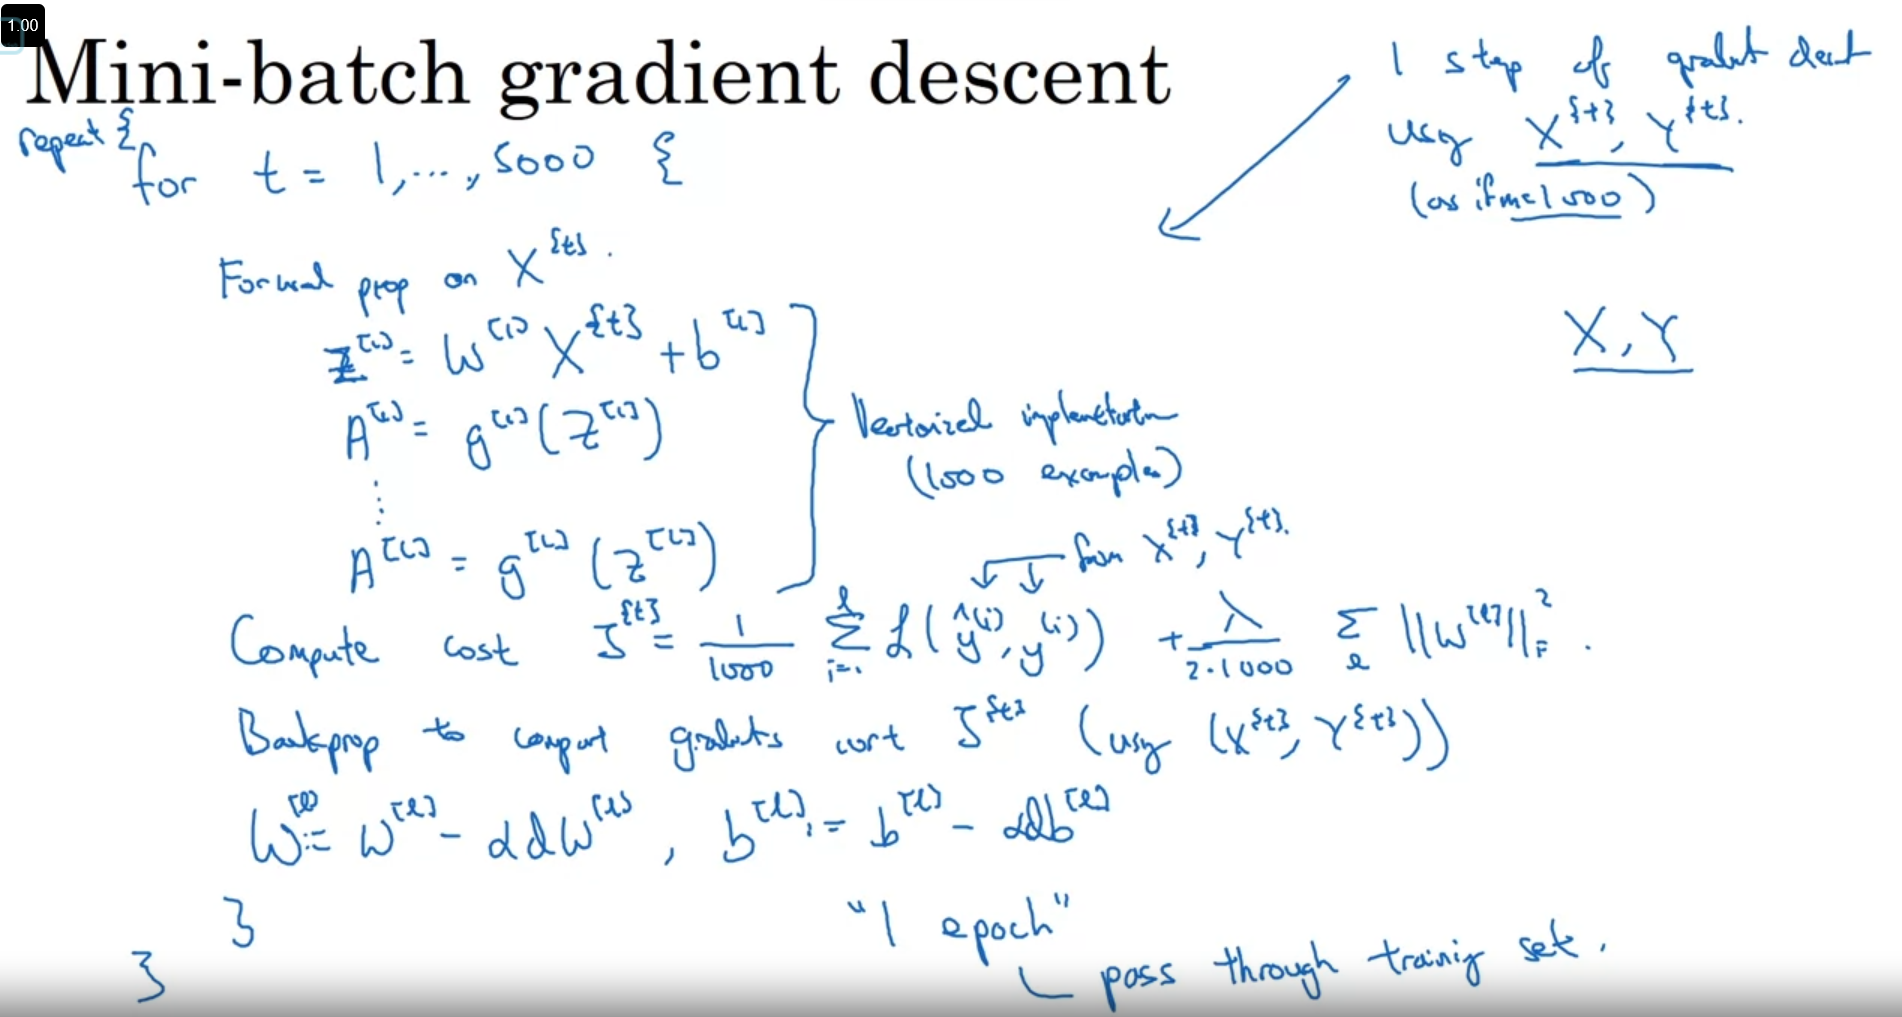 1.00
Mini-batch gradient descent
1 step of gradient descent
using X^{t}, Y^{t}.
(as if m=1000)
repeat {
for t = 1,..., 5000 {
X, Y
Forward prop on X^{t}.
Z^[1] = W^[1] X^{t} + b^[1]
A^[1] = g^[1](Z^[1])
⋮
A^[L] = g^[L](Z^[L])
Vectorized implementation
(1000 examples)
from X^{t}, Y^{t}.
Compute cost J^{t} = 1/1000 Σ_{i=1}^{l} L(ŷ^(i), y^(i)) + λ/(2·1000) Σ_l ||W^[l]||_F^2.
Backprop to compute gradients wrt J^{t} (using (X^{t}, Y^{t}))
W^[l] := W^[l] - αdW^[l], b^[l] := b^[l] - αdb^[l]
}
}
"1 epoch"
pass through training set.